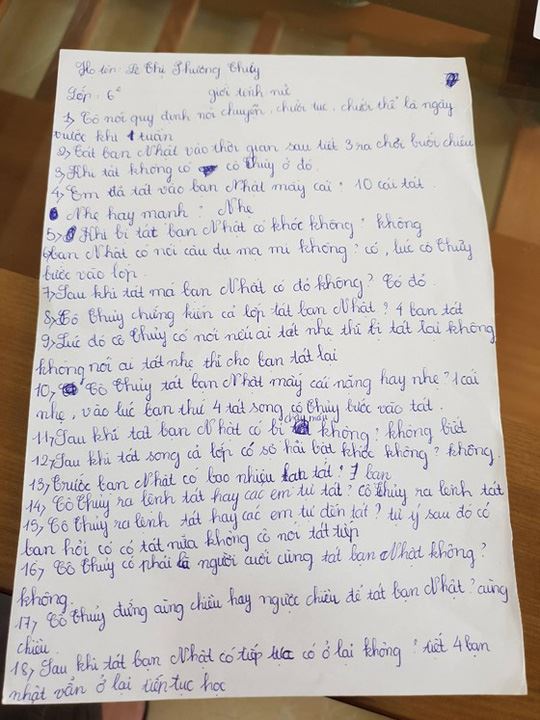 Họ tên: Lê Thị Phương Thúy
Lớp: 6² giới tính nữ
1, Cô nói quy định nói chuyện, chưởi tục, chưởi thề là ngày
trước khi 1 tuần
2, Tát bạn Nhật vào thời gian sau tiết 3 ra chơi buổi chiều
3, Khi tát không có cô Thủy ở đó.
4, Em đã tát vào bạn Nhật mấy cái? 10 cái tát.
Nhẹ hay mạnh? Nhẹ
5, Khi bị tát bạn Nhật có khóc không? không
6, bạn Nhật có nói câu đu ma mi không? có, lúc cô Thủy
bước vào lớp.
7, Sau khi tát má bạn Nhật có đỏ không? Có đỏ.
8, Cô Thủy chứng kiến cả lớp tát bạn Nhật? 4 bạn tát
9, Lúc đó cô Thủy có nói nếu ai tát nhẹ thì bị tát lại không
không nói ai tát nhẹ thì cho bạn tát lại
10, Cô Thủy tát bạn Nhật mấy cái nặng hay nhẹ? 1 cái
nhẹ, vào lúc bạn thứ 4 tát song cô Thủy bước vào tát.
11, Sau khi tát bạn Nhật có bị chảy máu không? không biết
12, Sau khi tát song cả lớp có sợ hãi bật khóc không? không.
13, Trước bạn Nhật có bao nhiêu bạn tát? 7 bạn
14, Cô Thủy ra lệnh tát hay các em tự tát? Cô Thủy ra lệnh tát
15, Cô Thủy ra lệnh tát hay các em tự đến tát? tự ý sau đó có
bạn hỏi cô có tát nữa không cô nói tát tiếp
16, Cô Thủy có phải là người cuối cùng tát bạn Nhật không?
không.
17, Cô Thủy đứng cùng chiều hay ngược chiều để tát bạn Nhật? cùng
chiều.
18, Sau khi tát bạn Nhật có tiếp tục có ở lại không? tiết 4 bạn
nhật vẫn ở lại tiếp tục học